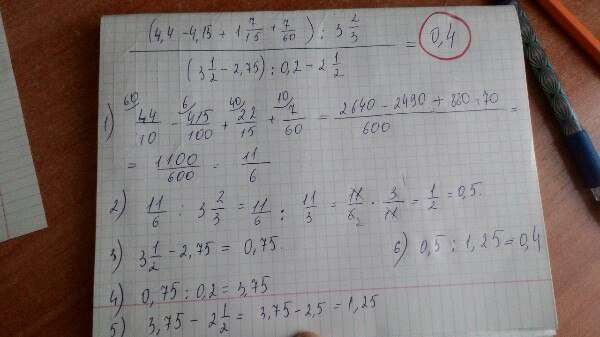 (4,4 - 4,15 + 1 7/15 + 7/60) : 3 2/3
(3 1/2 - 2,75) : 0,2 - 2 1/2
= 0,4
1) 60 44/10 - 6 415/100 + 40 22/15 + 10 7/60 = 2640 - 2490 + 880 + 70 / 600 =
= 1100/600 = 11/6
2) 11/6 : 3 2/3 = 11/6 : 11/3 = 11/6 2 · 3 1/11 = 1/2 = 0,5.
3) 3 1/2 - 2,75 = 0,75.
6) 0,5 : 1,25 = 0,4
4) 0,75 : 0,2 = 3,75
5) 3,75 - 2 1/2 = 3,75 - 2,5 = 1,25